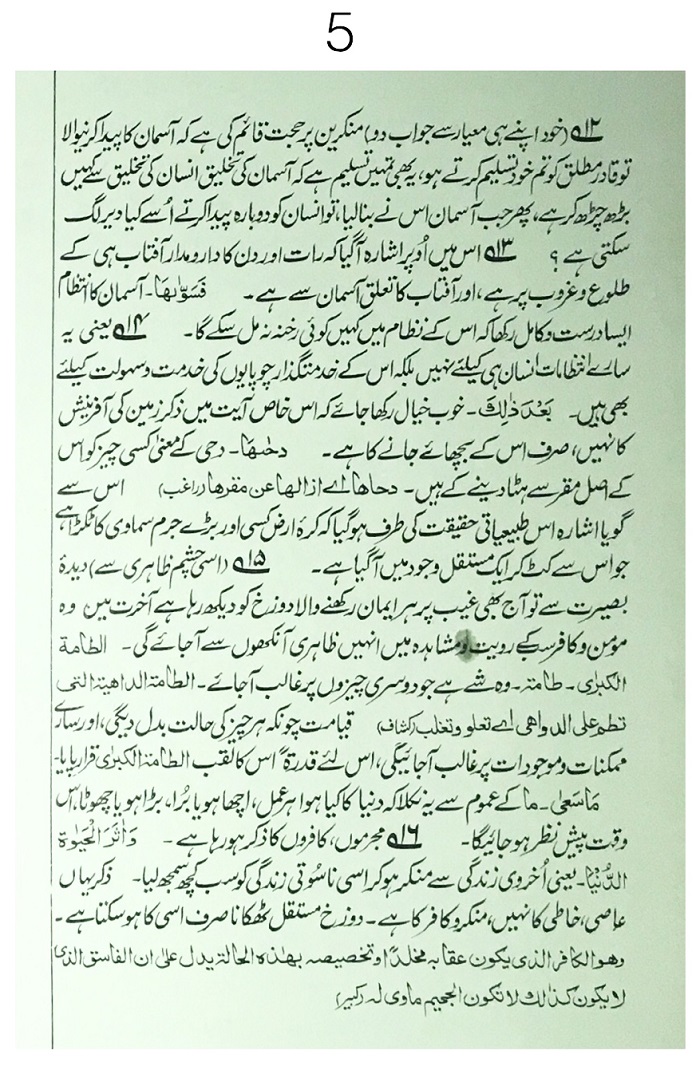 5
۱۲ (خود اپنے ہی معیار سے جواب دو) منکرین پر حجت قائم کی ہے کہ آسمان کا پیدا کرنیوالا
تو قادر مطلق کو تم خود تسلیم کرتے ہو، یہ بھی تمہیں تسلیم ہے کہ آسمان کی تخلیق انسان کی تخلیق سے کہیں
بڑھ چڑھ کر ہے، پھر جب آسمان اس نے بنا لیا، تو انسان کو دوبارہ پیدا کرتے اُسے کیا دیر لگ
سکتی ہے ؟ ۱۳ اس میں اُوپر اشارہ آگیا کہ رات اور دن کا دارومدار آفتاب ہی کے
طلوع و غروب پر ہے، اور آفتاب کا تعلق آسمان سے ہے۔ فَسَوّٰىهَا۔ آسمان کا انتظام
ایسا درست و کامل رکھا کہ اس کے نظام میں کہیں کوئی رخنہ نہ مل سکے گا۔ ۱۴ یعنی یہ
سارے انتظامات انسان ہی کیلئے نہیں بلکہ اس کے خدمتگذار چوپایوں کی خدمت و سہولت کیلئے
بھی ہیں۔ بَعْدَ ذٰلِكَ۔ خوب خیال رکھا جائے کہ اس خاص آیت میں ذکر زمین کی آفرینش
کا نہیں، صرف اس کے بچھائے جانے کا ہے۔ دحٰىها۔ دحی کے معنیٰ کسی چیز کو اس
کے اصل مقر سے ہٹا دینے کے ہیں۔ دحاها اے ازالها عن مقرها (راغب) اس سے
گویا اشارہ اس طبیعیاتی حقیقت کی طرف ہو گیا کہ کرۂ ارض کسی اور بڑے جرم سماوی کا ٹکڑا ہے،
جو اس سے کٹ کر ایک مستقل وجود میں آگیا ہے۔ ۱۵ (اسی چشم ظاہری سے) دیدۂ
بصیرت سے تو آج بھی غیب پر ہر ایمان رکھنے والا دوزخ کو دیکھ رہا ہے آخرت میں وہ
مؤمن و کافر سب کے رویت و مشاہدہ میں انہیں ظاہری آنکھوں سے آجائے گی۔ الطامة
الکبرٰی۔ طامتہ۔ وہ شے ہے جو دوسری چیزوں پر غالب آجائے۔ الطامة الداهية التی
تطم علی الدواهی اے تعلو و تغلب (کشاف) قیامت چونکہ ہر چیز کی حالت بدل دیگی، اور سارے
ممکنات و موجودات پر غالب آجائیگی، اس لئے قدرۃً اس کا لقب الطامة الکبرٰی قرار پایا۔
مَاسَعٰی۔ ما کے عموم سے یہ نکلا کہ دنیا کا کیا ہوا ہر عمل، اچھا ہو یا بُرا، بڑا ہو یا چھوٹا، اس
وقت پیش نظر ہو جائیگا۔ ۱۶ مجرموں، کافروں کا ذکر ہو رہا ہے۔ وَاٰثَرَ الْحَيٰوةَ
الدُّنْيَا۔ یعنی اُخروی زندگی سے منکر ہو کر اسی ناسُوتی زندگی کو سب کچھ سمجھ لیا۔ ذکر یہاں
عاصی، خاطی کا نہیں، منکر و کافر کا ہے۔ دوزخ مستقل ٹھکانا صرف اسی کا ہو سکتا ہے۔
وهو الکافر الذی یکون عقابه مخلدًا و تخصیصه بهٰذه الحالة یدل علیٰ ان الفاسق الذی
لا یکون کذٰلك لا تکون الجحیم ماوی له (کبیر)